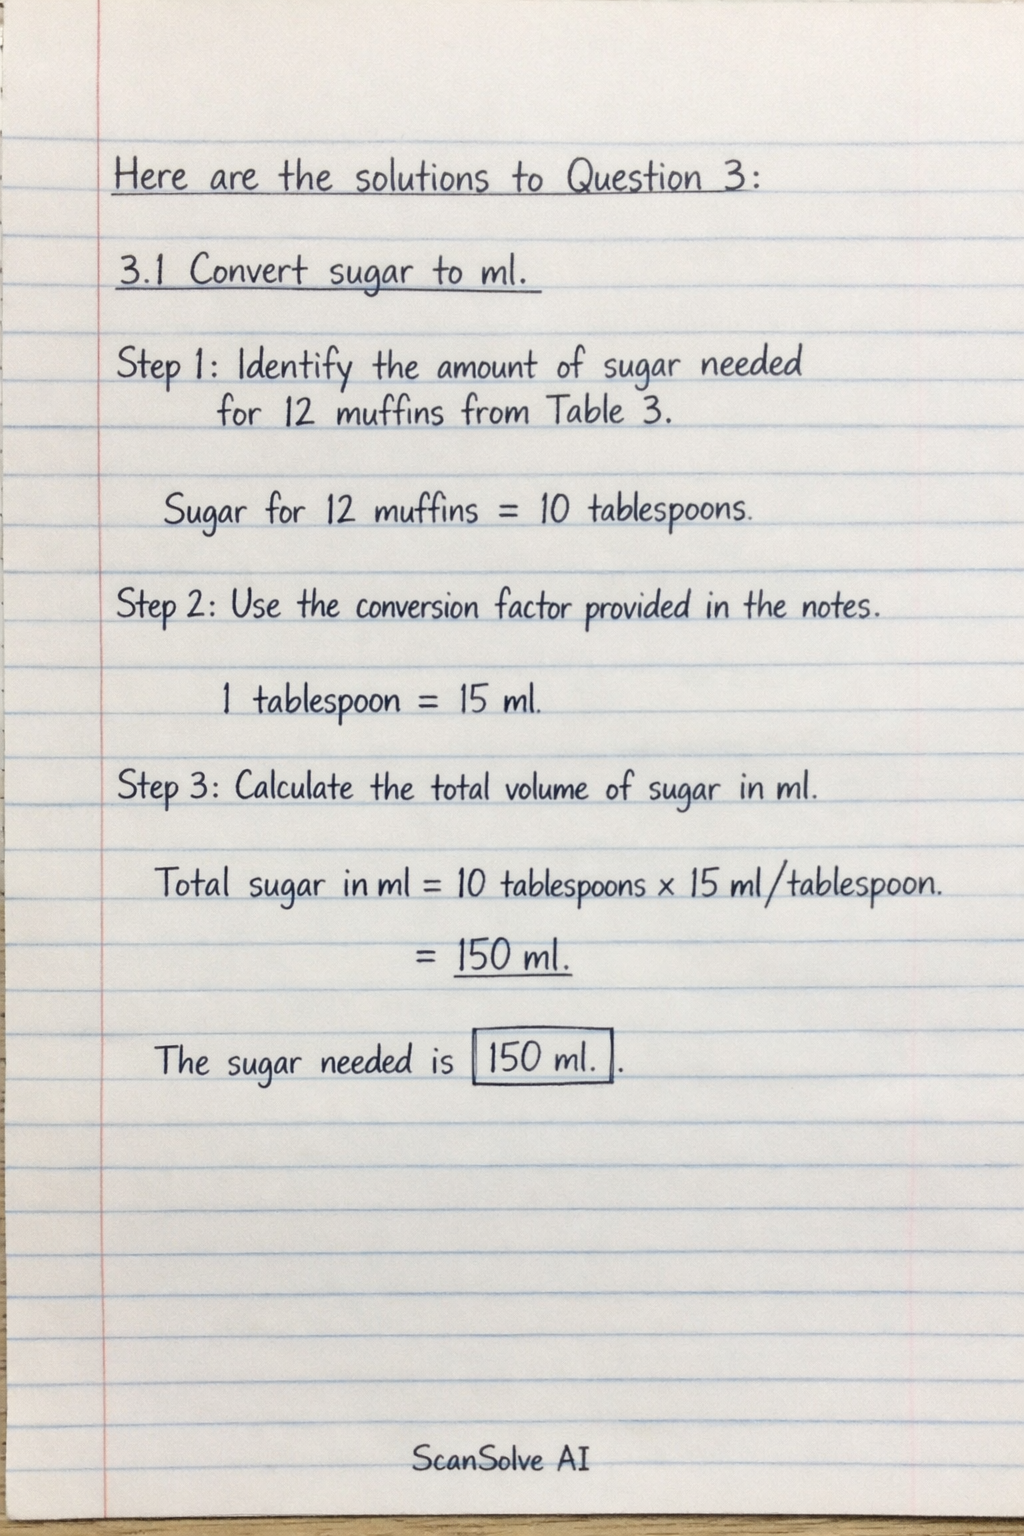 Here are the solutions to Question 3:
3.1 Convert sugar to ml.
Step 1: Identify the amount of sugar needed
for 12 muffins from Table 3.
Sugar for 12 muffins = 10 tablespoons.
Step 2: Use the conversion factor provided in the notes.
1 tablespoon = 15 ml.
Step 3: Calculate the total volume of sugar in ml.
Total sugar in ml = 10 tablespoons × 15 ml/tablespoon.
= 150 ml.
The sugar needed is 150 ml. .
ScanSolve AI